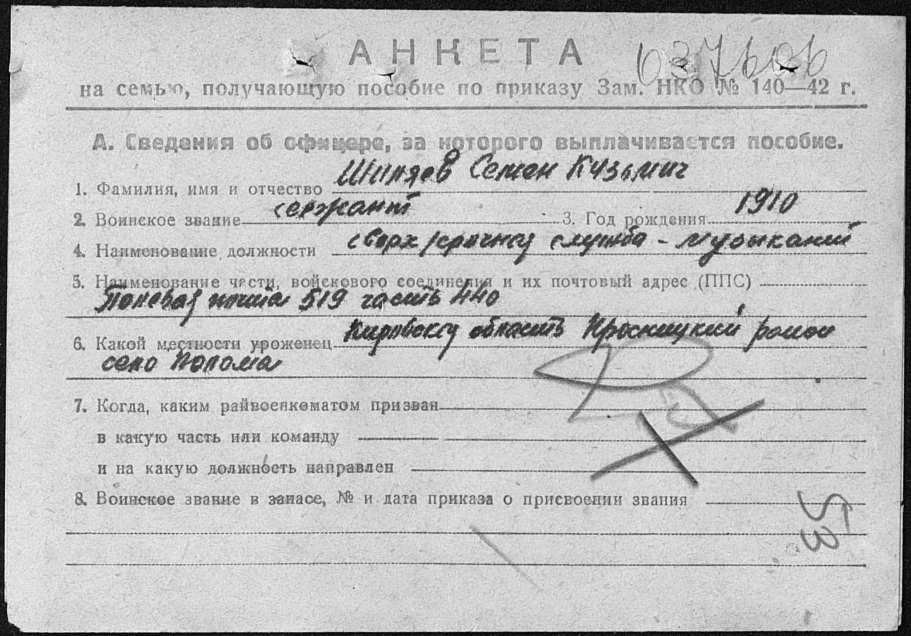 АНКЕТА
на семью, получающую пособие по приказу Зам. НКО № 140—42 г.
А. Сведения об офицере, за которого выплачивается пособие.
1. Фамилия, имя и отчество Шиляев Семен Кузьмич
2. Воинское звание сержант 3. Год рождения 1910
4. Наименование должности служба - музыкант
5. Наименование части, войскового соединения и их почтовый адрес (ППС)
Полевая почта 519 часть 440
6. Какой местности уроженец область район
село Полома
7. Когда, каким райвоенкоматом призван
в какую часть или команду
и на какую должность направлен
8. Воинское звание в запасе, № и дата приказа о присвоении звания
53